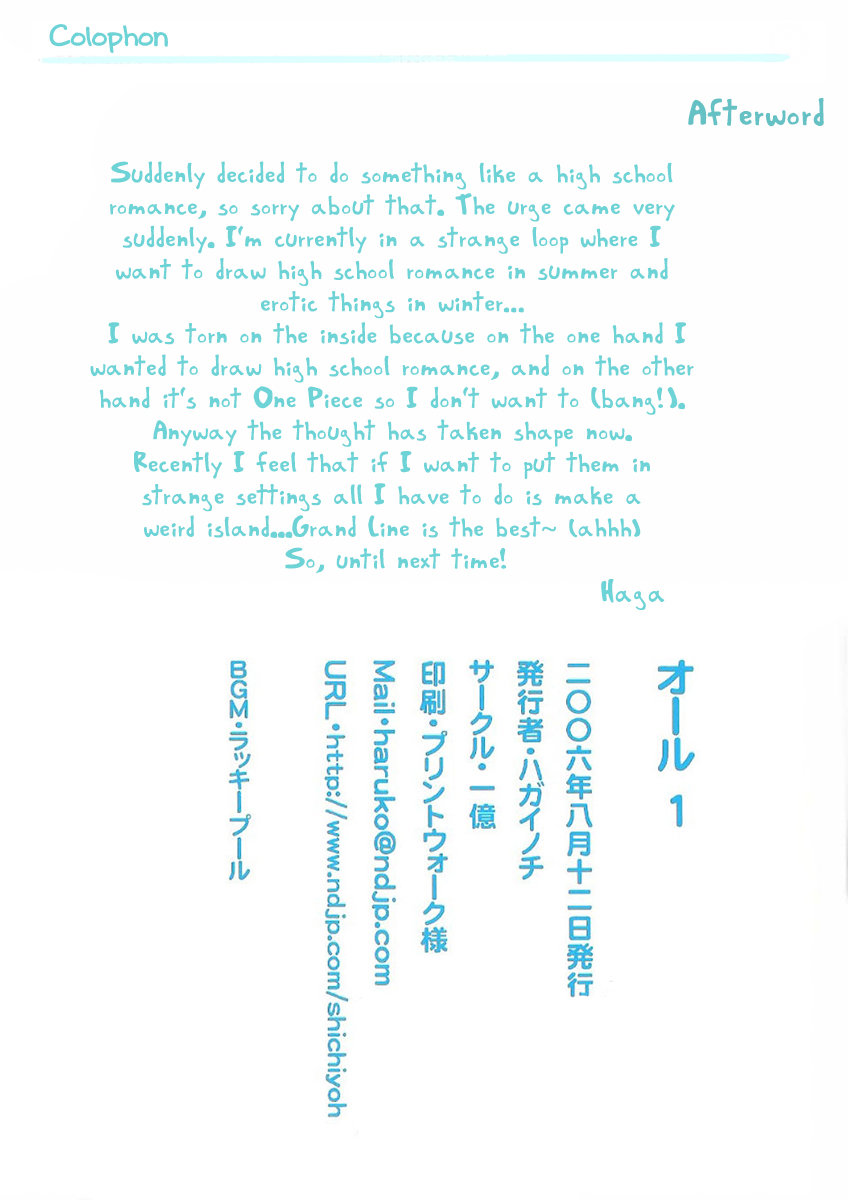 Colophon
Afterword
Suddenly decided to do something like a high school
romance, so sorry about that. The urge came very
suddenly. I'm currently in a strange loop where I
want to draw high school romance in summer and
erotic things in winter...
I was torn on the inside because on the one hand I
wanted to draw high school romance, and on the other
hand it's not One Piece so I don't want to (bang!).
Anyway the thought has taken shape now.
Recently I feel that if I want to put them in
strange settings all I have to do is make a
weird island...Grand Line is the best~ (ahhh)
So, until next time!
Haga
オール 1
二〇〇六年八月十二日発行
発行者・ハガイノチ
サークル・一億
印刷・プリントウォーク様
Mail・haruko@ndjp.com
URL・http://www.ndjp.com/shichiyoh
BGM・ラッキープール